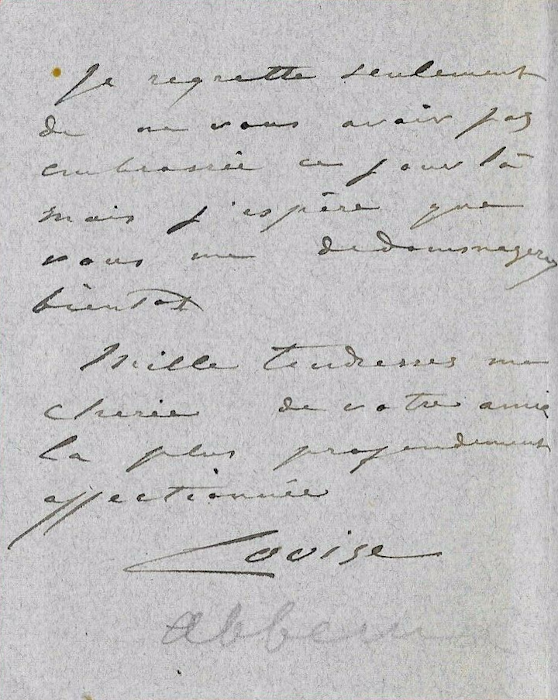 Je regrette seulement
de ne vous avoir pas
embrassée ce jour là
mais j'espère que
vous me dedommagerez
bientot
Mille tendresses ma
cherie de votre amie
la plus profondement
affectionnée
Louise
abbema